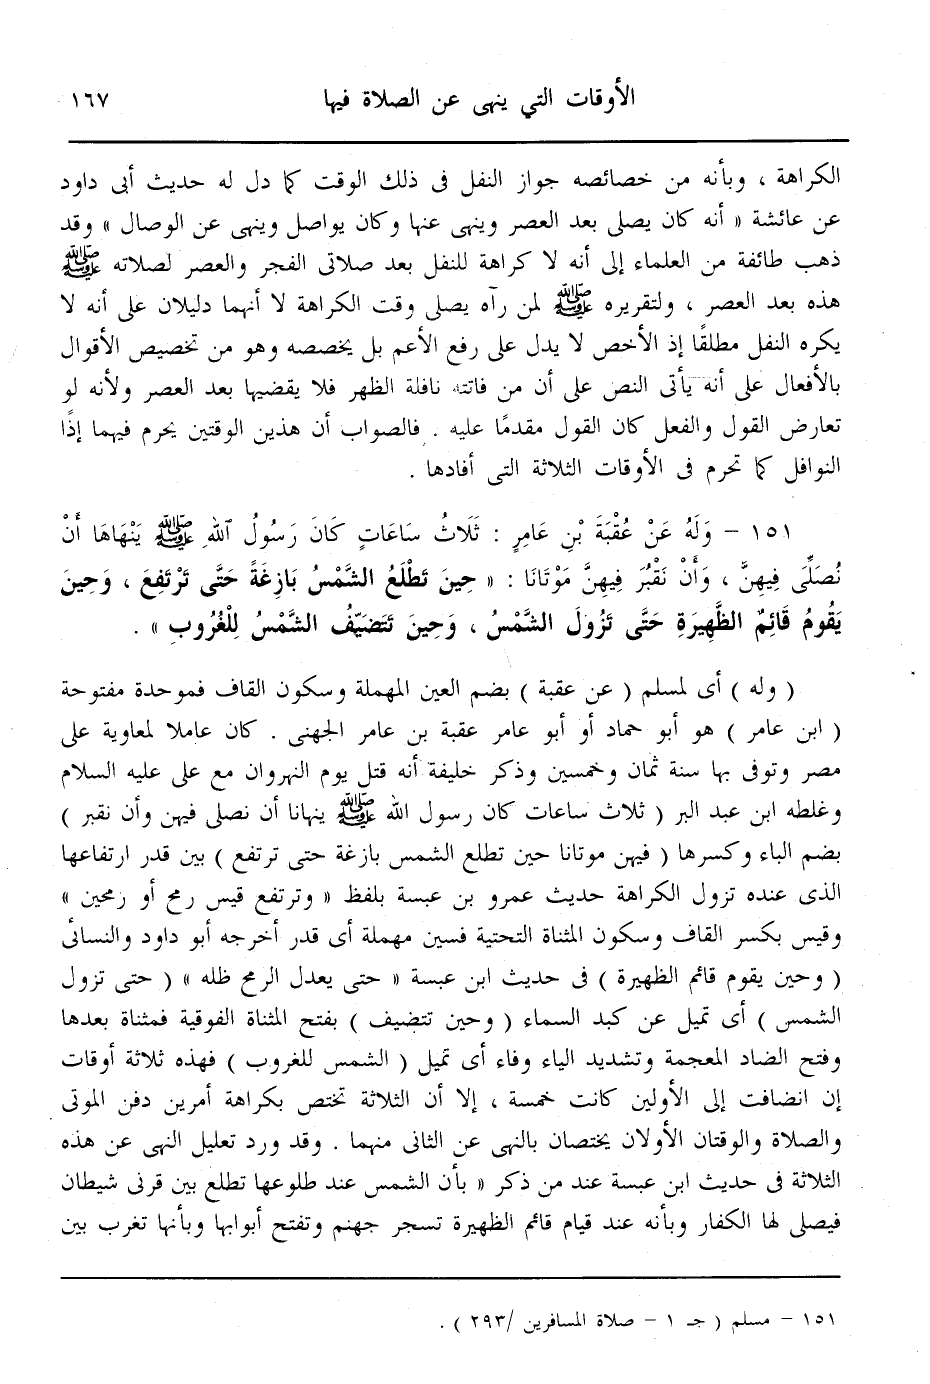 الأوقات التي ينهى عن الصلاة فيها ١٦٧
الكراهة ، وبأنه من خصائصه جواز النفل فى ذلك الوقت كما دل له حديث أبى داود
عن عائشة « أنه كان يصلى بعد العصر وينهى عنها وكان يواصل وينهى عن الوصال » وقد
ذهب طائفة من العلماء إلى أنه لا كراهة للنفل بعد صلاتى الفجر والعصر لصلاته ﷺ
هذه بعد العصر ، ولتقريره ﷺ لمن رآه يصلى وقت الكراهة لا أنهما دليلان على أنه لا
يكره النفل مطلقًا إذ الأخص لا يدل على رفع الأعم بل يخصصه وهو من تخصيص الأقوال
بالأفعال على أنه يأتى النص على أن من فاتته نافلة الظهر فلا يقضيها بعد العصر ولأنه لو
تعارض القول والفعل كان القول مقدمًا عليه . فالصواب أن هذين الوقتين يحرم فيهما إذًا
النوافل كما تحرم فى الأوقات الثلاثة التى أفادها .
١٥١ – وَلَهُ عَنْ عُقْبَةَ بْنِ عَامِرٍ : ثَلَاثُ سَاعَاتٍ كَانَ رَسُولُ ٱللهِ ﷺ يَنْهَاهَا أَنْ
نُصَلِّى فِيهِنَّ ، وَأَنْ نَقْبُرَ فِيهِنَّ مَوْتَانَا : « حِينَ تَطْلَعُ الشَّمْسُ بَازِغَةً حَتَّى تَرْتَفِعَ ، وَحِينَ
يَقُومُ قَائِمُ الظَّهِيرَةِ حَتَّى تَزُولَ الشَّمْسُ ، وَحِينَ تَتَضَيَّفُ الشَّمْسُ لِلْغُرُوبِ » .
( وله ) أى لمسلم ( عن عقبة ) بضم العين المهملة وسكون القاف فموحدة مفتوحة
( ابن عامر ) هو أبو حماد أو أبو عامر عقبة بن عامر الجهنى . كان عاملا لمعاوية على
مصر وتوفى بها سنة ثمان وخمسين وذكر خليفة أنه قتل يوم النهروان مع على عليه السلام
وغلطه ابن عبد البر ( ثلاث ساعات كان رسول الله ﷺ ينهانا أن نصلى فيهن وأن نقبر )
بضم الباء وكسرها ( فيهن موتانا حين تطلع الشمس بازغة حتى ترتفع ) بين قدر ارتفاعها
الذى عنده تزول الكراهة حديث عمرو بن عبسة بلفظ « وترتفع قيس رمح أو رمحين »
وقيس بكسر القاف وسكون المثناة التحتية فسين مهملة أى قدر أخرجه أبو داود والنسائى
( وحين يقوم قائم الظهيرة ) فى حديث ابن عبسة « حتى يعدل الرمح ظله » ( حتى تزول
الشمس ) أى تميل عن كبد السماء ( وحين تتضيف ) بفتح المثناة الفوقية فمثناة بعدها
وفتح الضاد المعجمة وتشديد الياء وفاء أى تميل ( الشمس للغروب ) فهذه ثلاثة أوقات
إن انضافت إلى الأولين كانت خمسة ، إلا أن الثلاثة تختص بكراهة أمرين دفن الموتى
والصلاة والوقتان الأولان يختصان بالنهى عن الثانى منهما . وقد ورد تعليل النهى عن هذه
الثلاثة فى حديث ابن عبسة عند من ذكر « بأن الشمس عند طلوعها تطلع بين قرنى شيطان
فيصلى لها الكفار وبأنه عند قيام قائم الظهيرة تسجر جهنم وتفتح أبوابها وبأنها تغرب بين
١٥١ – مسلم ( جـ ١ – صلاة المسافرين /٢٩٣ ) .